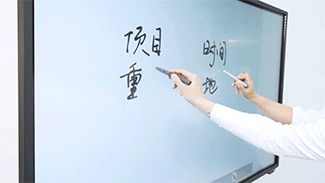 项目 时间
重 地